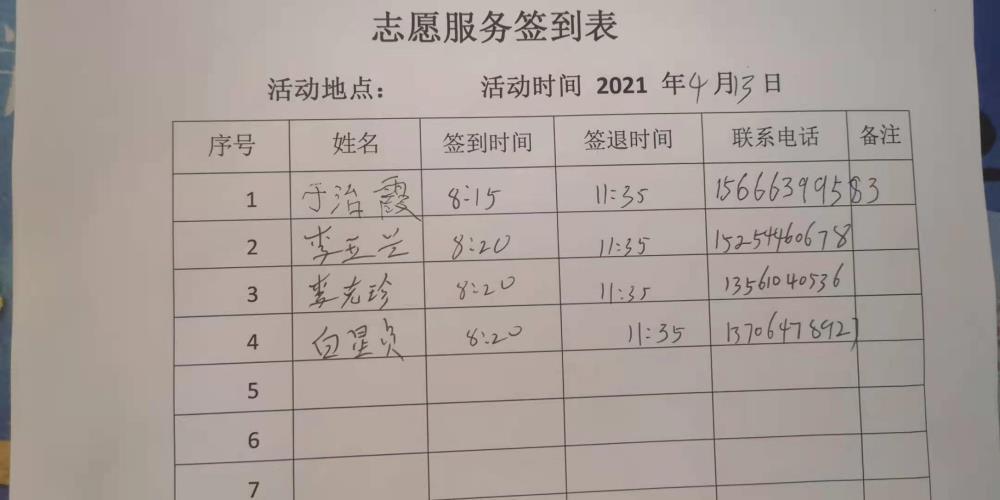 志愿服务签到表
活动地点： 活动时间 2021 年4月13日
序号 姓名 签到时间 签退时间 联系电话 备注
1 于治霞 8:15 11:35 15666399583
2 李玉兰 8:20 11:35 15254460678
3 娄克珍 8:20 11:35 13561040536
4 白星贞 8:20 11:35 13706478927
5
6
7